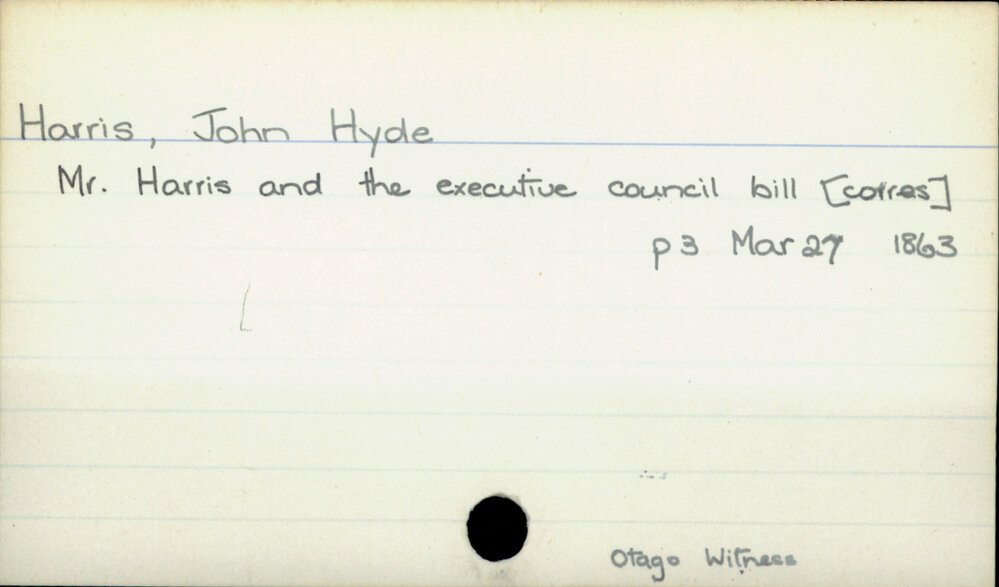 Harris, John Hyde
Mr. Harris and the executive council bill [corres]
p 3 Mar 27 1863
Otago Witness